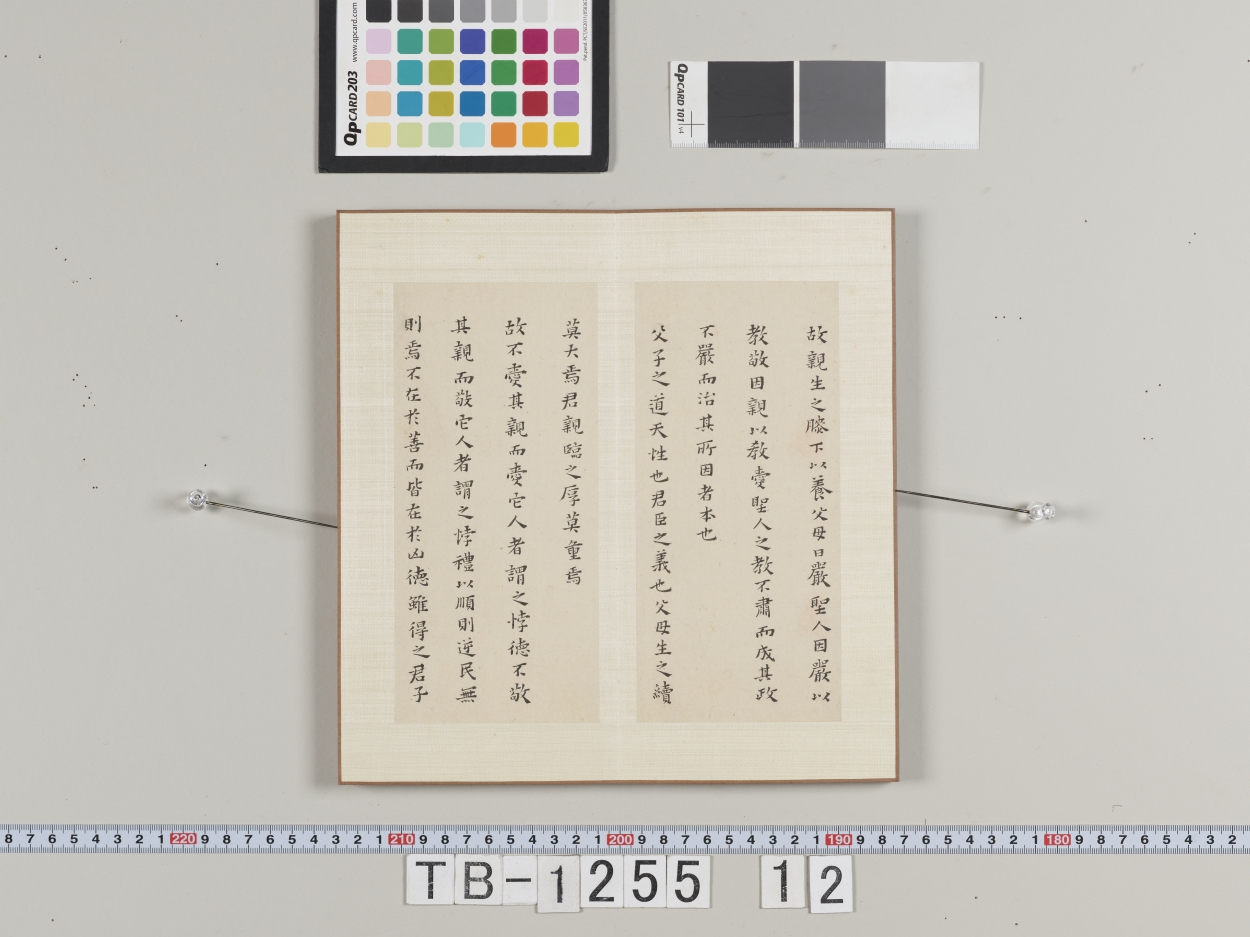 www.qpcard.com
QpCARD 203
QpCARD 101 v4
故親生之膝下以養父母日嚴聖人因嚴以
教敬因親以教愛聖人之教不肅而成其政
不嚴而治其所因者本也
父子之道天性也君臣之義也父母生之續
莫大焉君親臨之厚莫重焉
故不愛其親而愛它人者謂之悖德不敬
其親而敬它人者謂之悖禮以順則逆民無
則焉不在於善而皆在於凶德雖得之君子
8 7 6 5 4 3 2 1 220 9 8 7 6 5 4 3 2 1 210 9 8 7 6 5 4 3 2 1 200 9 8 7 6 5 4 3 2 1 190 9 8 7 6 5 4 3 2 1 180 9 8 7 6 5 4 3 2
TB-1255 12